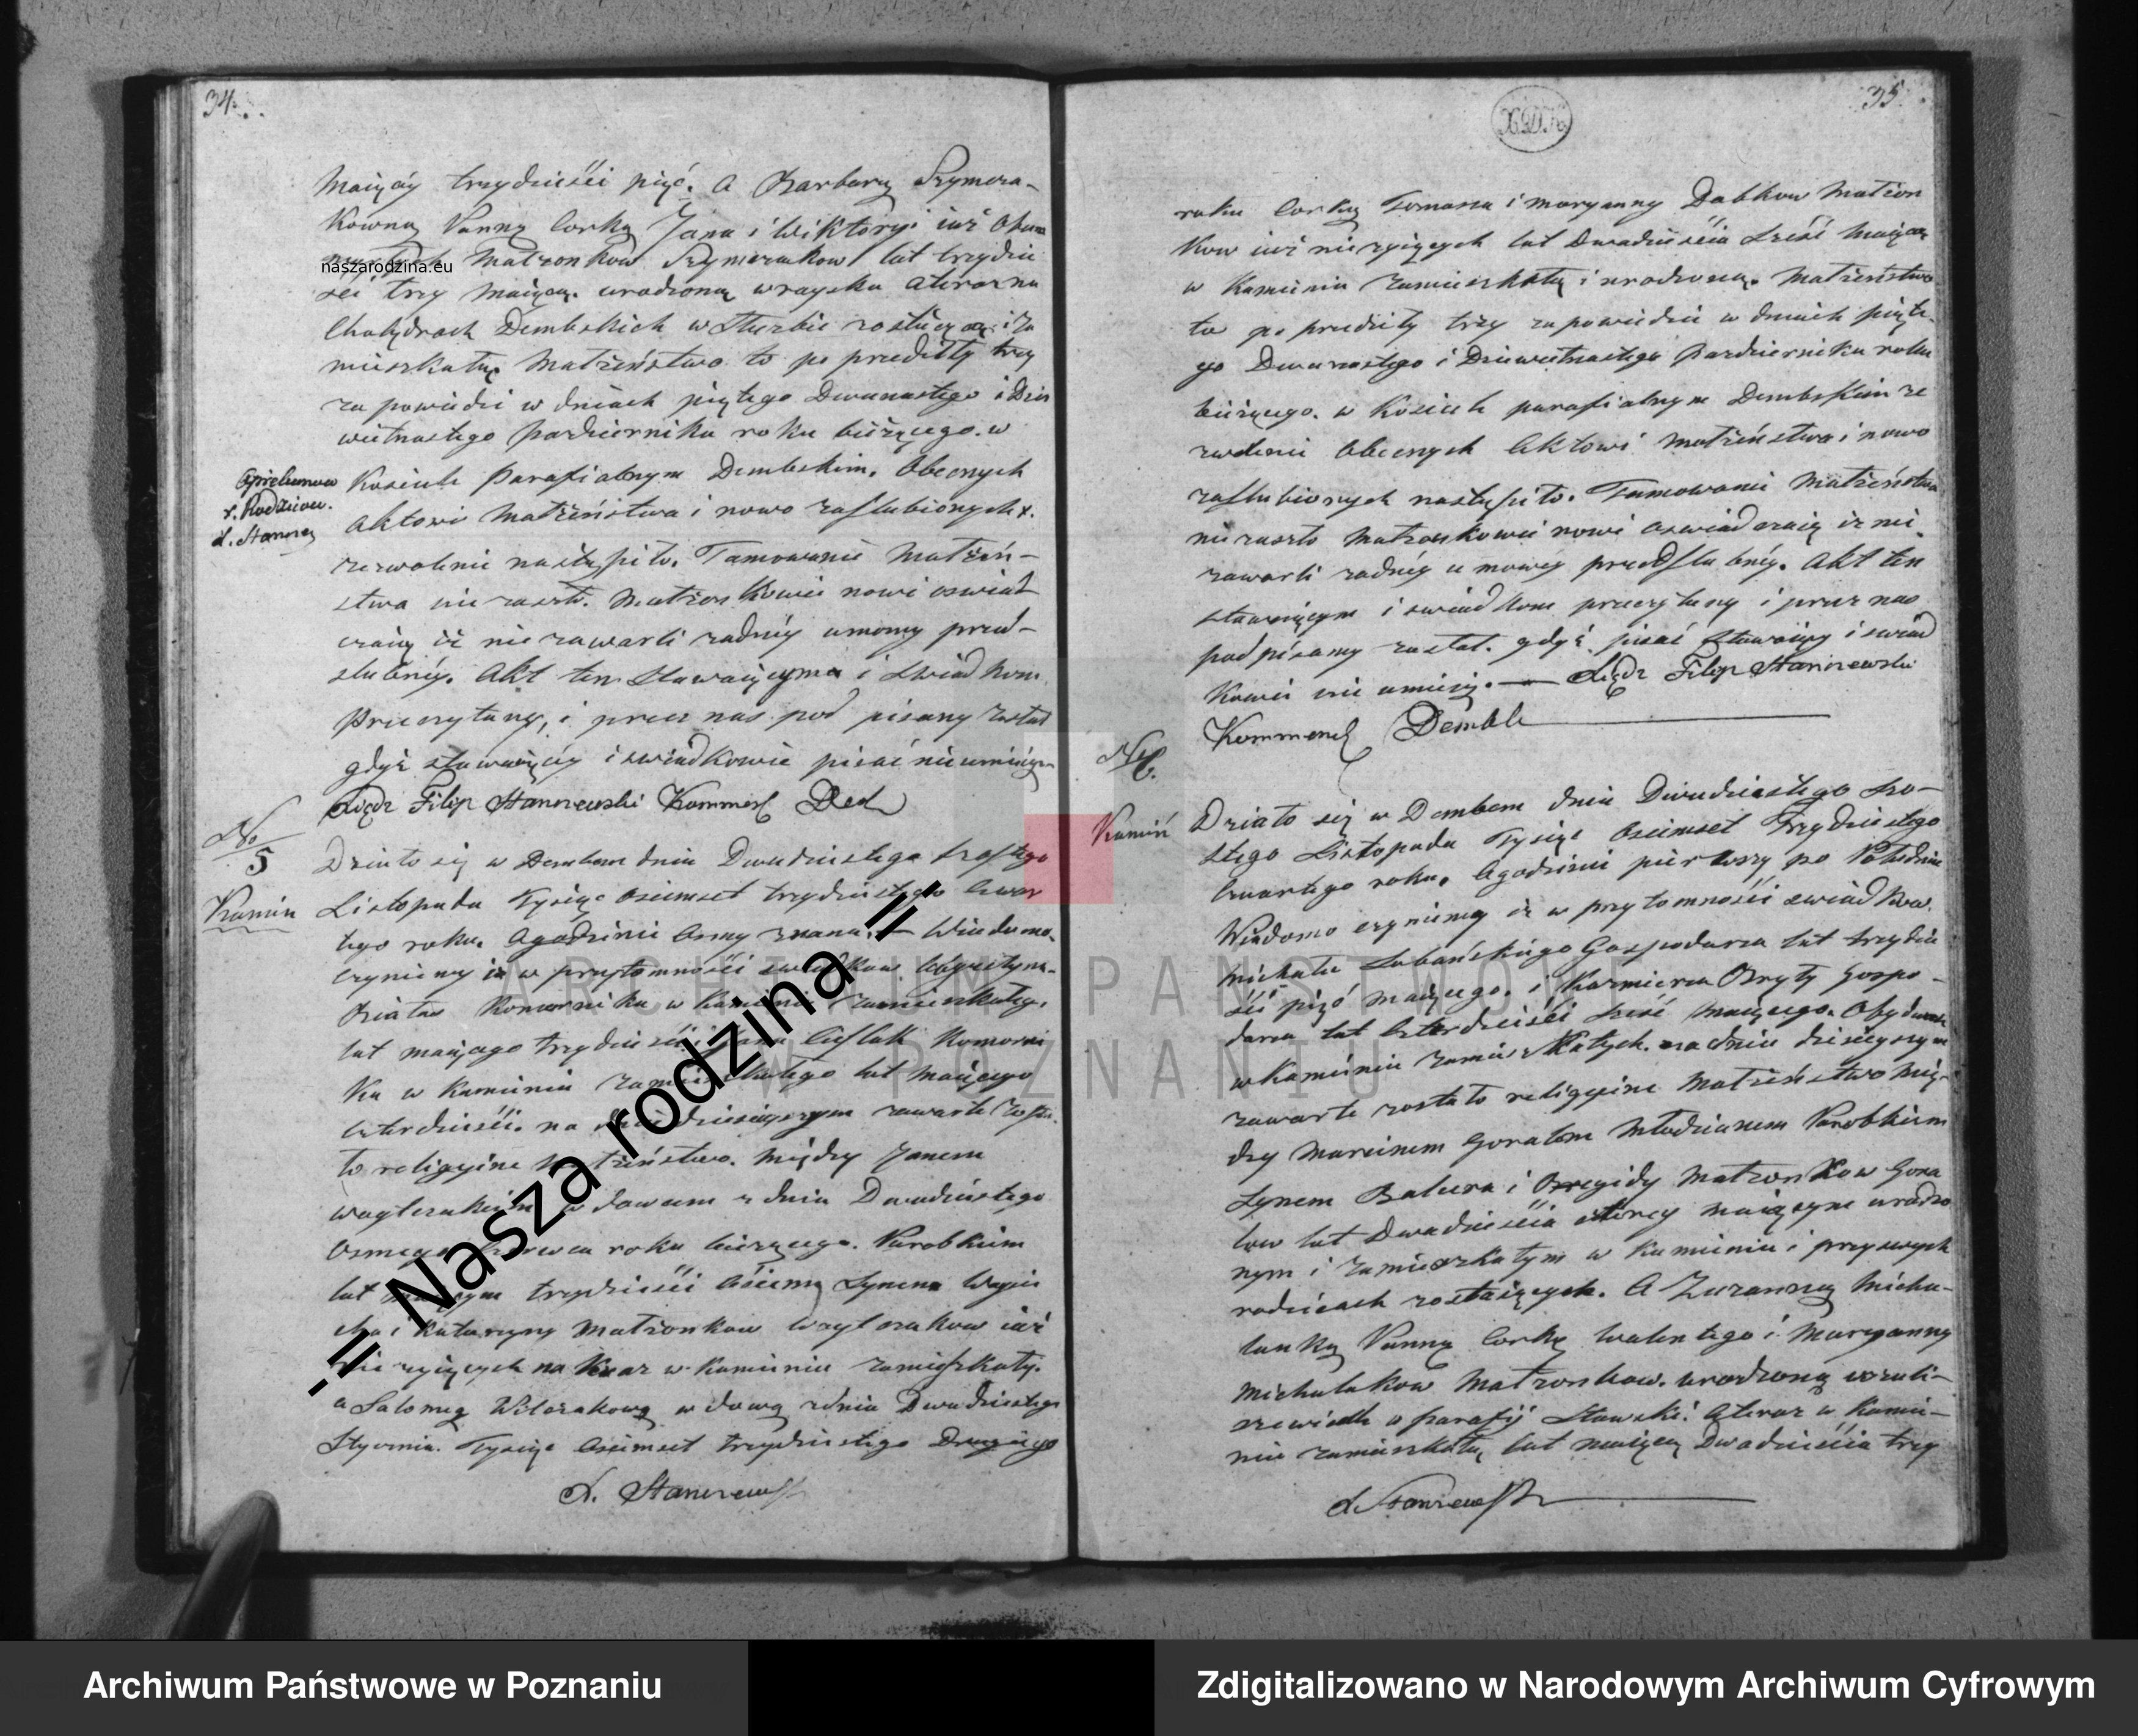 34.
maiący trzydzieści pięć. A Barbarą Szymcza-
kowną Panną Corką Jana i Wiktoryi iuż Obum
Matzonkow Szymczakow lat trzydzie
ści trzy maiącą. urodzoną w aterazna
Dembskich w zostaiącą i za
mieszkałą Matżeństwo to po przedziły trzy
zapowiedzi w dniach piątego Dwunastego i Dzie
wietnastego Pazdziernika roku bieżącego. w
kosciele Parafialnym Dembskim. Obecnych
r. Rodzicow.
X. Stanczew
Aktowi Matżeństwa i nowo zaslubionych x.
zezwolenie nastąpiło. Tamowanie Matżeń-
stwa nie zaszło. Matzonkowie nowi oswiad
czaią iż nie zawarli zadnéy umowy przed-
slubnéy. Akt ten Stawaiącyma i swiadkom
Przeczytany, i przez nas podpisany został
gdyż stawaiący i swiadkowie pisać nieumieią.
Xiądz Filip Stanczewski Kommend
No
5
Kamin
Działo się w Dembem dnia Dwudziestego szostego
Listopada Tysiąc osiemset trzydziestego Czwar
tego roku. Ogodzinie osmy zrana. — Wiadomo
czyniemy iż w przytomności swiadkow Augustyna
Komornika w Kamieniu zamieszkałego.
lat maiącego trzydzieści i Jana Cieslak Komorni
ka w Kamieniu zamieszkałego lat maiącego
czterdzieści. na dniu dzisieyszym zawarte zosta
to religyine Matżeństwo. między Janem
wdowcem z dnia Dwudziestego
Osmego Czerwca roku bieżącego. Parobkiem
lat maiącym trzydzieści Synem Woycie
cha i Katarzyny Matzonkow iuż
nie zyiących na teraz w Kamieniu zamieszkały.
a Salomeą Witczakową wdową zdnia Dwudziestego
Stycznia. Tysiąc osiemset trzydziestego Drugiego
X. Stanczewski
35.
roku Corką Tomasza i maryanny Dabkow Matzon
kow iuż nie zyiących lat Dwadzieścia sześć maiącą
w Kamieniu zamieszkałą i urodzoną. Matżeństwo
to po przedziły trzy zapowiedzi w dniach piąte-
go Dwunastego i Dziewietnastego Pazdziernika roku
bieżącego. w Kosciele parafialnym Dembskim ze
zwolenie Obecnych Aktowi Matżeństwa i nowo
zaslubionych nastąpiło. Tamowanie Matżeństwa
nie zaszło Matzonkowie nowi oswiadczaią iż nie
zawarli zadnéy umowéy przedslubnéy. Akt ten
stawaiącym i swiadkom przeczytany i przez nas
podpisany został. gdyż pisać stawaiący i swiad
kowie nie umieią. — Xiądz Filip Stanczewski
Kommend Dembe
No 6.
Kamiń
Działo się w Dembem dnia Dwudziestego szo-
stego Listopada Tysiąc osiemset Trzydziestego
Czwartego roku. Ogodzinie pierwszy po Południu
Wiadomo czyniemy iż w przytomności swiadkow.
Michała Lubańskiego Gospodarza lat trzydzie
ści pięć maiącego. i Kazmierza Bryły Gospo-
darza lat czterdzieści sześć maiącego. Obydwoch
w Kamieniu zamieszkałych. na dniu dzisieyszym
zawarte zostało religyine Matżeństwo mię-
dzy Marcinem Goralem Młodzianem Parobkiem
Synem Balcera i Bregidy Matzonkow Gora
low lat Dwadzieścia cztery maiącym urodzo
nym i zamieszkałym w Kamieniu i przy swych
rodzicach zostaiących. A Zuzanną Micha-
lanką Panną Corką Walentego i Maryanny
Michalakow Matzonkow. urodzoną
w parafij Stawski. Ateraz w Kamie-
niu zamieszkałą lat maiącą Dwadzieścia trzy
X Stanczewski
naszarodzina.eu
-= Nasza rodzina =-
ARCHIWUM PAŃSTWOWE
W POZNANIU
Archiwum Państwowe w Poznaniu
Zdigitalizowano w Narodowym Archiwum Cyfrowym